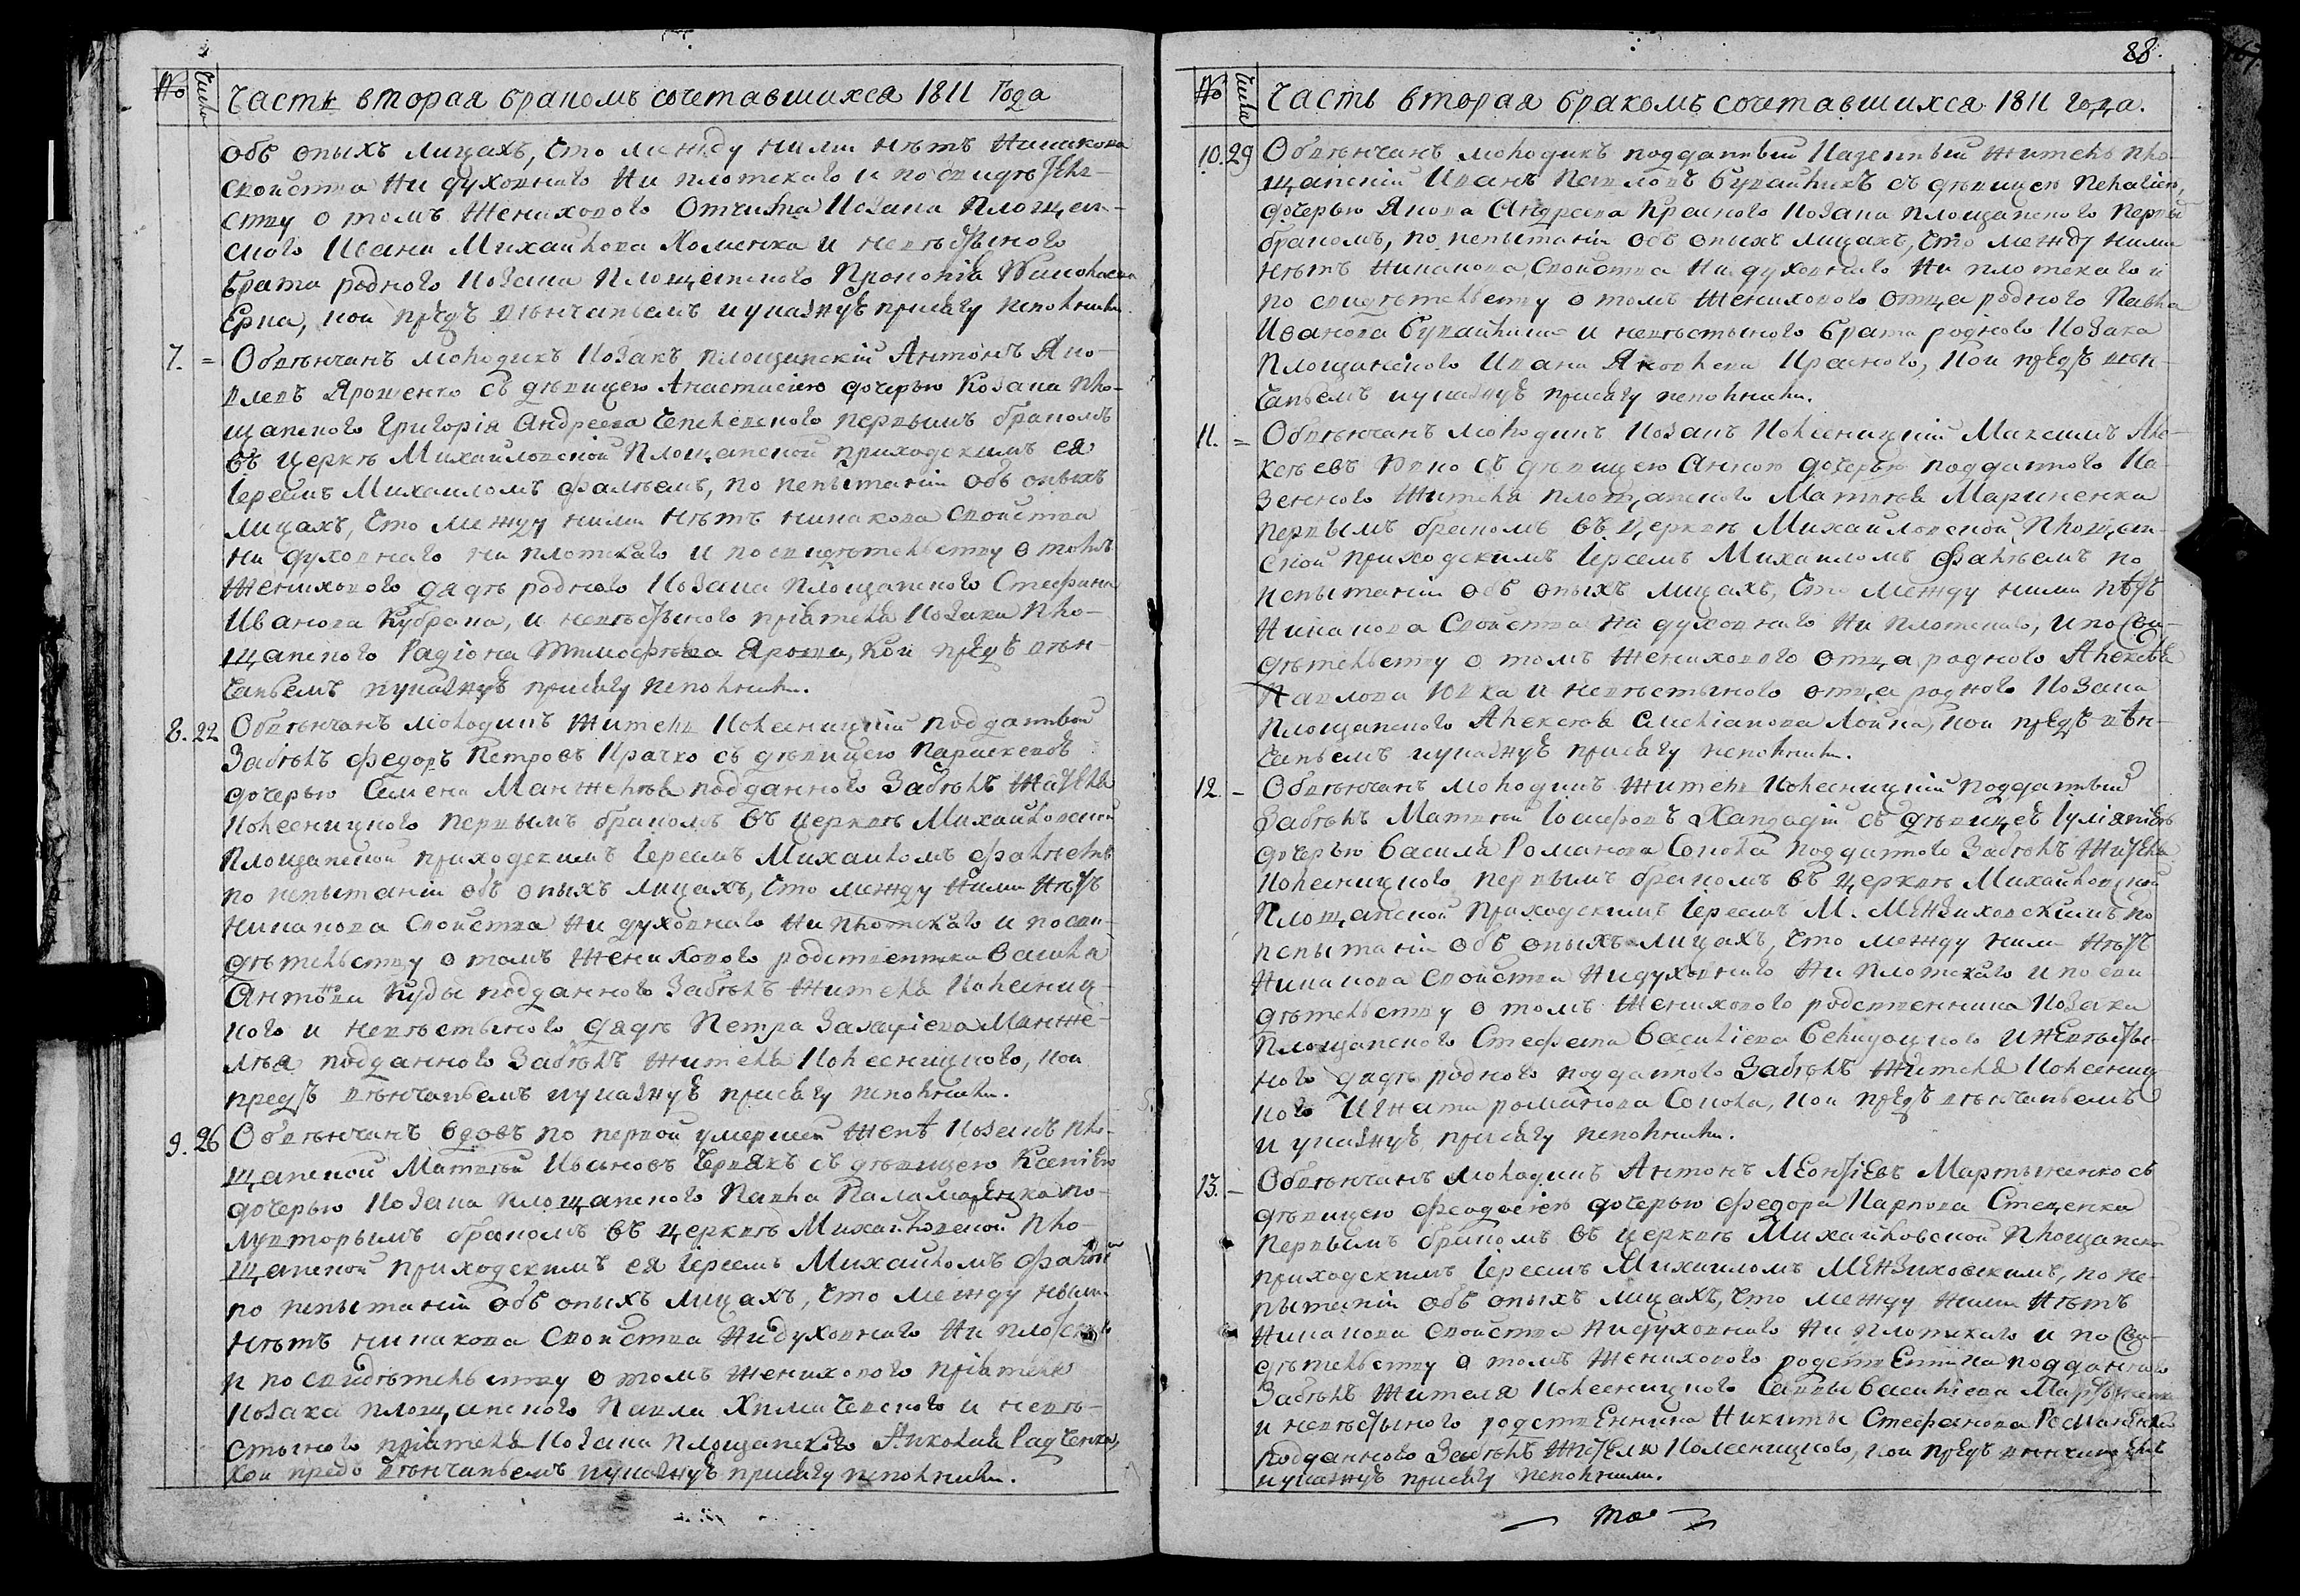 № Числа Часть вторая бракомъ сочетавшихся 1811 Года
объ оныхъ лицахъ, что между ними нѣтъ никакова
свойства ни духовнаго ни плотскаго и по свидѣтель-
ству о томъ женихового отчима козака площан-
ского Ивана Михайлова Хоменка и невѣстьного
брата родного козака площанского Прокопія
Ерка, кои предъ вѣнчаньемъ и указную присягу исполнили.
7. = Обвѣнчанъ молодикъ козакъ площанскій Антонъ Яко-
влевъ Ярошенко съ дѣвицею Анастасіею дочерью козака пло-
щанского Григорія Андреева первымъ бракомъ
въ церквѣ Михайловской Площанской приходскимъ ея
Іереемъ Михаиломъ Фалѣемъ, по испытаніи объ оныхъ
лицахъ, что между ними нѣтъ никакова свойства
ни духовнаго ни плотскаго и по свидѣтельству о томъ
женихового дядѣ родного козака площанского Стефана
Иванова Кубрака, и невѣстьного пріятеля козака пло-
щанского Радіона Тимофѣева Ярошa, кои предъ вѣн-
чаньемъ и указную присягу исполнили.
8. 22 Обвѣнчанъ молодикъ житель колесницкій подданный
Забѣлъ Федоръ Петровъ Крачко съ дѣвицею Параскевою
дочерью Семена Манжелѣя подданного Забѣлъ жителя
колесницкого первымъ бракомъ въ церквѣ Михайловской
Площанской приходскимъ Іереемъ Михаиломъ Фалѣемъ
по испытаніи объ оныхъ лицахъ, что между ними нѣтъ
никакова свойства ни духовнаго ни плотскаго и по сви-
дѣтельству о томъ женихового родственника Василя
Антонова Куды подданного Забѣлъ жителя колесниц-
кого и невѣстьного дядѣ Петра Захаріева Манже-
лѣя подданного Забѣлъ жителя колесницкого, кои
предъ вѣнчаньемъ и указную присягу исполнили.
9. 26 Обвѣнчанъ вдовъ по первой умершей женѣ козакъ пло-
щанской Матвѣй Ивановъ Чернякъ съ дѣвицею Ксеніею
дочерью козака площанского Павла Паламаренка по-
лувторымъ бракомъ въ церквѣ Михайловской Пло-
щанской приходскимъ ея Іереемъ Михаиломъ Фалѣемъ
по испытаніи объ оныхъ лицахъ, что между ними
нѣтъ никакова свойства ни духовнаго ни плотскаго
и по свидѣтельству о томъ женихового пріятеля
козака площанского Павла Хилмичевского и невѣ-
стьного пріятеля козака площанского Николая Радченка,
кои предъ вѣнчаньемъ и указную присягу исполнили.
88.
№ Числа Часть вторая бракомъ сочетавшихся 1811 года.
10. 29 Обвѣнчанъ молодикъ подданный казенный житель пло-
щанскій Иванъ Павловъ съ дѣвицею Пелагіею,
дочерью Якова Андреева Красного козака площанского первымъ
бракомъ, по испытаніи объ оныхъ лицахъ, что между ними
нѣтъ никакова свойства ни духовнаго ни плотскаго и
по свидѣтельству о томъ женихового отца родного Павла
Иванова и невѣстьного брата родного козака
площанского Ивана Яковлева Красного, кои предъ вѣн-
чаньемъ и указную присягу исполнили.
11. = Обвѣнчанъ молодикъ козакъ колесницкій Максимъ Але-
ксѣевъ Юпко съ дѣвицею Анною дочерью подданного ка-
зенного жителя площанского Матвѣя Мариненка
первымъ бракомъ въ церквѣ Михайловской Площан-
ской приходскимъ Іереемъ Михаиломъ Фалѣемъ по
испытаніи объ оныхъ лицахъ, что между ними нѣтъ
никакова свойства ни духовнаго ни плотскаго, и по сви-
дѣтельству о томъ женихового отца родного Алексѣя
Павлова Юпка и невѣстьного отца родного козака
площанского Алексѣя Лойка, кои предъ вѣн-
чаньемъ и указную присягу исполнили.
12. – Обвѣнчанъ молодикъ житель колесницкій подданный
Забѣлъ Матвѣй Іосифовъ съ дѣвицею Іуліаніею
дочерью Василя Романова Сокола подданного Забѣлъ жителя
колесницкого первымъ бракомъ въ церквѣ Михайловской
Площанской приходскимъ Іереемъ М. Мензиховскимъ по
испытаніи объ оныхъ лицахъ, что между ними нѣтъ
никакова свойства ни духовнаго ни плотскаго и по сви-
дѣтельству о томъ женихового родственника козака
площанского Стефана Василіева и невѣсть-
ного дядѣ родного подданного Забѣлъ жителя колесниц-
кого Игната романова Сокола, кои предъ вѣнчаньемъ
и указную присягу исполнили.
13. – Обвѣнчанъ молодикъ Антонъ Леонтіевъ Мартыненко съ
дѣвицею Феодосіею дочерью Федора Карпова Стеценка
первымъ бракомъ въ церквѣ Михайловской Площанской
приходскимъ Іереемъ Михаиломъ Мензиховскимъ, по ис-
пытаніи объ оныхъ лицахъ, что между ними нѣтъ
никакова свойства ни духовнаго ни плотскаго и по сви-
дѣтельству о томъ женихового родственника подданного
Забѣлъ жителя колесницкого Саввы Василіева Мартыненка
и невѣстьного родственника Никиты Стефанова Романенка
подданного Забѣлъ жителя колесницкого, кои предъ вѣнчаньемъ
и указную присягу исполнили.